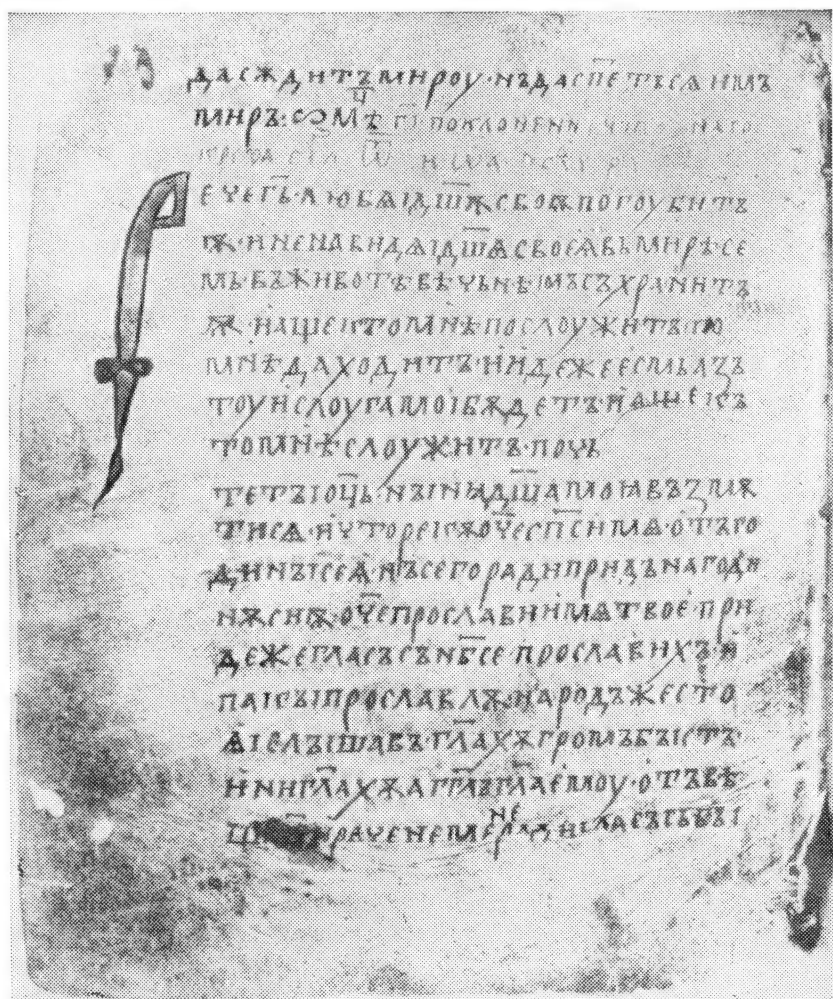 дасѫдитъмироу·нъдасп҃етъсѧимъ
миръ:мѣц҃г҃іпоклонении
Рече г҃ь·любѧідш҃ѫсвоѭпогоубитъ
ѭ·иненавидѧідш҃ѧсвоеѩвьмирѣсе
мь·въживотѣвѣчьнѣмъсъхранитъ
ѭ·иащектомнѣпослоужитъ·по
мнѣдаходитъ·иидежеесмьазъ
тоуислоугамоібѫдетъ·иащекъ
томнѣслоужитъ·почь
тетъіоц҃ь·нꙑнѣдш҃амоꙗвъзмѫ
тисѧ·ичторекѫоч҃есп҃симѧ·отъго
динꙑсеѩ·нъсегорадипридънагоди
нѫсиѭ·оч҃епрославиимѧтвое·при
дежегласъсън҃бсе·прославихъ·и
пакꙑпрославлѭ·народъжесто
ѩіслꙑшавъ·гл҃ахѫгромъбꙑстъ·
ииниг҃лахѫаг҃глъг҃лаемоу·отъвѣ
рѧченемене радигласъсьбꙑ